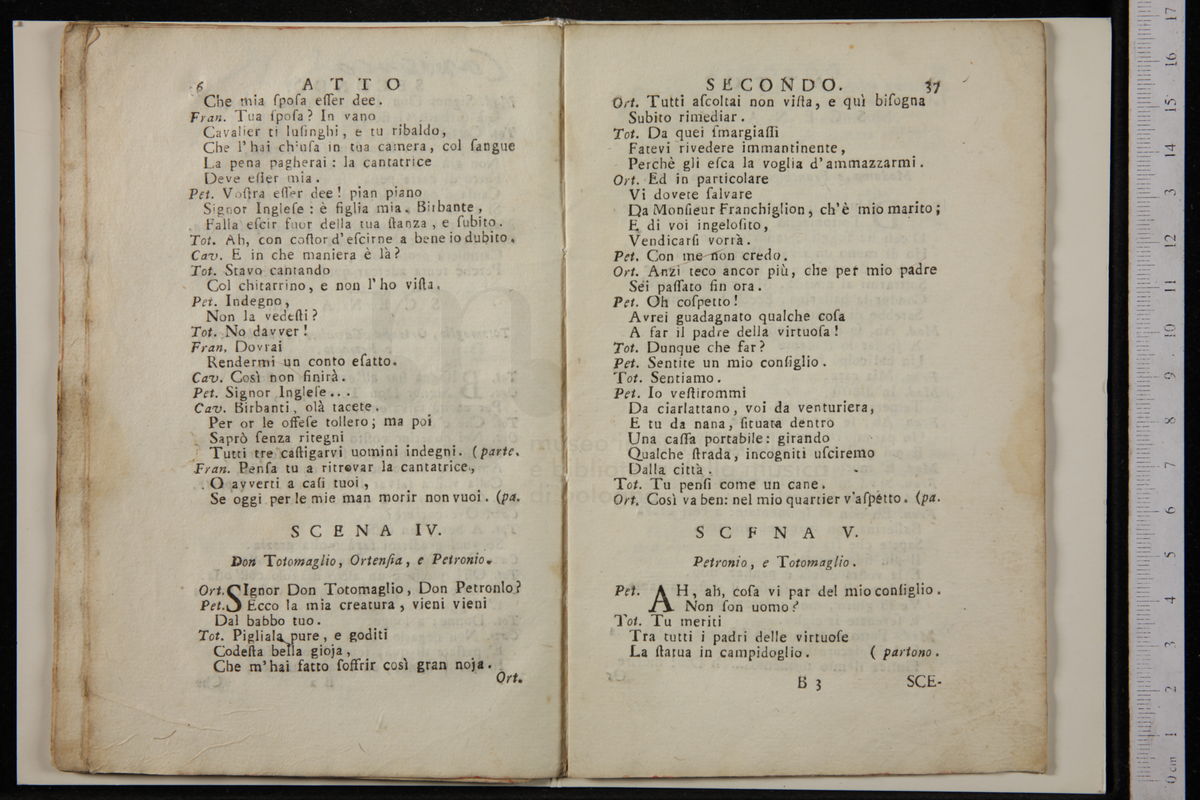 6 ATTO
Che mia ſpoſa eſſer dee.
Fran. Tua ſpoſa? In vano
Cavalier ti luſinghi, e tu ribaldo,
Che l'hai chiuſa in tua camera, col ſangue
La pena pagherai: la cantatrice
Deve eſſer mia.
Pet. Voſtra eſſer dee! pian piano
Signor Ingleſe: è figlia mia. Birbante,
Falla eſcir fuor della tua ſtanza, e ſubito.
Tot. Ah, con coſtor d'eſcirne a bene io dubito.
Cav. E in che maniera è là?
Tot. Stavo cantando
Col chitarrino, e non l'ho viſta.
Pet. Indegno,
Non la vedeſti?
Tot. No davver!
Fran. Dovrai
Rendermi un conto eſatto.
Cav. Così non finirà.
Pet. Signor Ingleſe...
Cav. Birbanti, olà tacete.
Per or le offeſe tollero; ma poi
Saprò ſenza ritegni
Tutti tre caſtigarvi uomini indegni. (parte.
Fran. Penſa tu a ritrovar la cantatrice,
O avverti a caſi tuoi,
Se oggi per le mie man morir non vuoi. (pa.
SCENA IV.
Don Totomaglio, Ortenſia, e Petronio.
Ort. SIgnor Don Totomaglio, Don Petronlo?
Pet. Ecco la mia creatura, vieni vieni
Dal babbo tuo.
Tot. Pigliala pure, e goditi
Codeſta bella gioja,
Che m'hai fatto ſoffrir così gran noja.
Ort.
SECONDO. 37
Ort. Tutti aſcoltai non viſta, e quì biſogna
Subito rimediar.
Tot. Da quei ſmargiaſſi
Fatevi rivedere immantinente,
Perchè gli eſca la voglia d'ammazzarmi.
Ort. Ed in particolare
Vi dovete ſalvare
Da Monſieur Franchiglion, ch'è mio marito;
E di voi ingeloſito,
Vendicarſi vorrà.
Pet. Con me non credo.
Ort. Anzi teco ancor più, che per mio padre
Sei paſſato fin ora.
Pet. Oh coſpetto!
Avrei guadagnato qualche coſa
A far il padre della virtuoſa!
Tot. Dunque che far?
Pet. Sentite un mio conſiglio.
Tot. Sentiamo.
Pet. Io veſtirommi
Da ciarlattano, voi da venturiera,
E tu da nana, ſituata dentro
Una caſſa portabile: girando
Qualche ſtrada, incogniti uſciremo
Dalla città.
Tot. Tu penſi come un cane.
Ort. Così va ben: nel mio quartier v'aſpetto. (pa.
SCENA V.
Petronio, e Totomaglio.
Pet. AH, ah, coſa vi par del mio conſiglio.
Non ſon uomo?
Tot. Tu meriti
Tra tutti i padri delle virtuoſe
La ſtatua in campidoglio. (partono.
B 3 SCE-